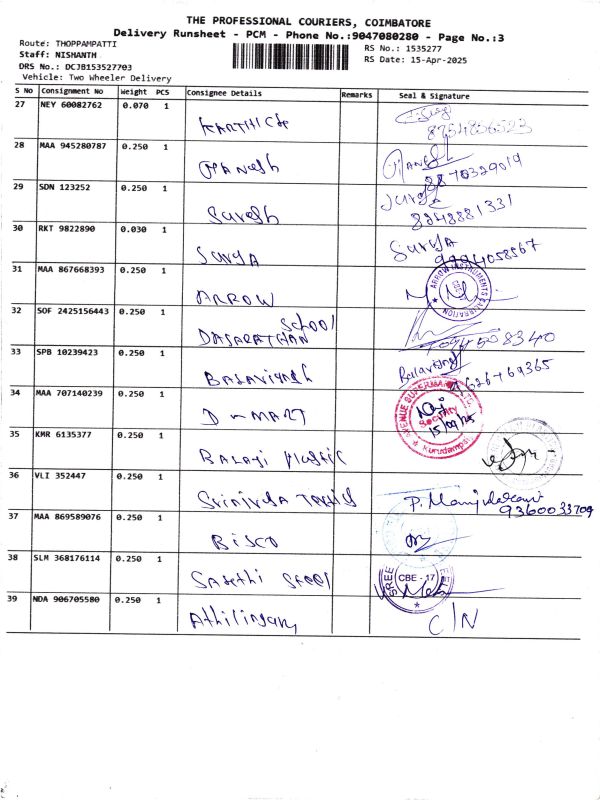 THE PROFESSIONAL COURIERS, COIMBATORE
Delivery Runsheet - PCM - Phone No.:9047080280 - Page No.:3
Route: THOPPAMPATTI
RS No.: 1535277
Staff: NISHANTH
RS Date: 15-Apr-2025
DRS No.: DCJB153527703
Vehicle: Two Wheeler Delivery
S No Consignment No Weight PCS Consignee Details Remarks Seal & Signature
27 NEY 60082762 0.070 1
KARTHICK
8754856523
28 MAA 945280787 0.250 1
GANESH
GANESH
8870329019
29 SDN 123252 0.250 1
Suresh
8248881331
30 RKT 9822890 0.030 1
SURYA
SURYA
9994058567
31 MAA 867668393 0.250 1
ARROW
ARROW INSTRUMENTS
32 SOF 2425156443 0.250 1
DASARATHAN School
33 SPB 10239423 0.250 1
9626769365
34 MAA 707140239 0.250 1
D-MART
AVENUE SUPERMARTS LTD
Security
15/04/25
35 KMR 6135377 0.250 1
BALAJI Plastic
36 VLI 352447 0.250 1
9360033709
37 MAA 869589076 0.250 1
BISCO
38 SLM 368176114 0.250 1
SREE
CBE - 17
39 NDA 906705580 0.250 1
Athilingam
C/N